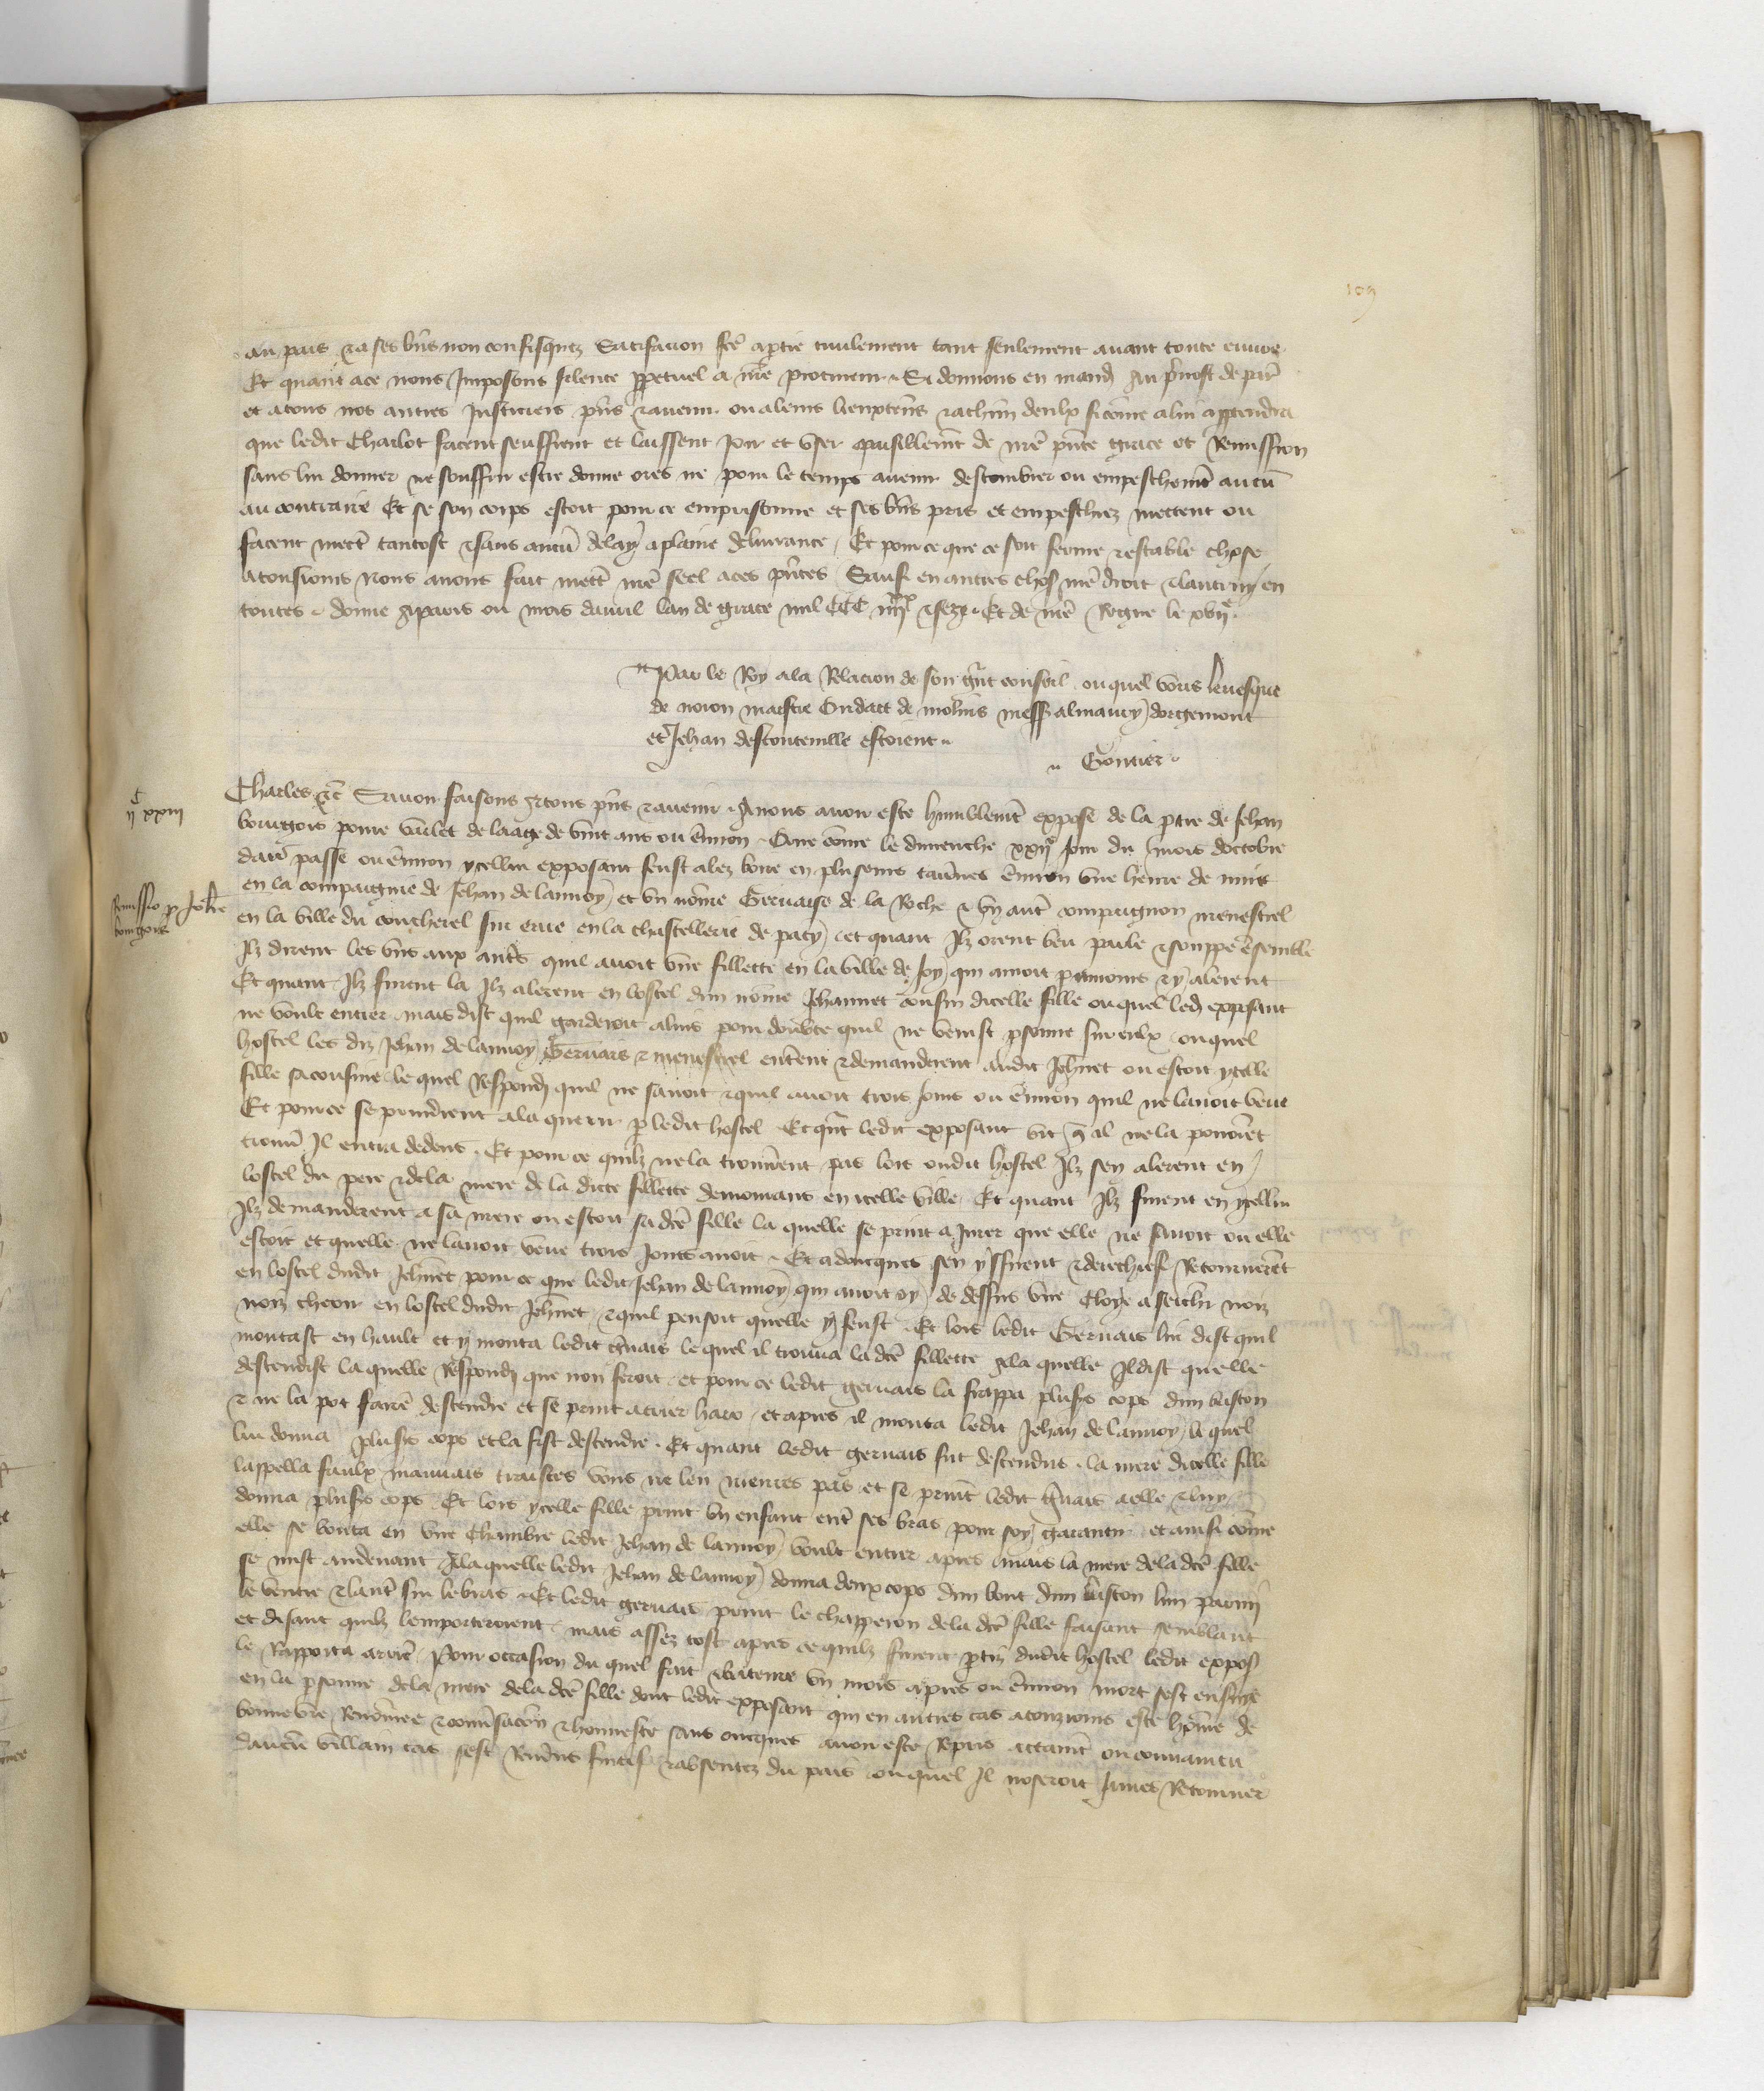 109
au pais et a ses biens non confisquez Satisfacion fce a ptie civilement tant seulement avant toute euvre
Et quant a ce nous Imposons silence ppetuel a nre procureur Si donnons en mand au pvost de par
et a tous nos autres Justiciers pns et avenir ou a leurs lieuxtens et a chun deulx si come a lui apptendra
que ledit Charlot facent seuffrent et laissent Joir et user paisiblemt de nre pnte grace et Remission
sans lui donner ne souffrir estre donne ores ne pour le temps avenir destourbier ou empeschemt aucu
au contraire Et se son corps estoit pour ce emprisonne et ses bns pris et empeschiez mettent ou
facent mett tantost et sans aucu delay a plaine delivrance Et pour ce que ce soit ferme et estable chose
a tousiours Nous avons fait mett nre seel a ces pntes Sauf en autres chos nre droit et lautruy en
toutes donne a paris ou mois davril lan de grace mil CCC iiijxx et seze Et de nre Regne le xvije
Par le Roy a la Relacion de son gnt conseil ouquel vous levesque
de noion maistre Oudart de molins mess almaury dorgemont
et Jehan destouteville estoient
Gontier
ijc xxiiij
Charles etc Savoir faisons a tous pns et avenir A nous avoir este humblemt expose de la ptie de Jehan
bourgois povre varlet de laage de vint ans ou environ Que come le dimenche xxije Jour du mois doctobre
darr passe ou environ ycellui exposant feust alez boire en pluseurs tavnes environ une heure de nuit
Remissio p Johne
bourgois
en la compaignie de Jehan de lannoy et un nome Gervaise de la Roche et un autre compaignon menestrel
en la ville du coucherel sur eure en la chastellerie de pacy et quant Ilz orent beu parle et souppe ensemble
Ilz dirent les uns aux autres quil avoit une fillette en la ville de Joy qui amoit p amours et y alerent
Et quant Ilz furent la Ilz alerent en lostel dun nome Jehannet cousin dicelle fille ouquel led exposant
ne voult entrer mais dist quil garderoit a luis pour doubte quil ne venist psonne sur eulx ouquel
hostel les diz Jehan de lannoy Gervais et menestrel entrent et demanderent audit Jehnet ou estoit ycelle
fille sa cousine lequel Respondi quil ne savoit et quil avoit trois Jours ou environ quil ne lavoit veue
Et pour ce se prindrent a la querir p ledit hostel Et qnt ledit exposant vit que al ne la povoiet
trouv Il entra dedens Et pour ce quilz ne la trouverent pas lors oudit hostel Ilz sen alerent en
lostel du pere et de la mere de la dicte fillette demourans en icelle ville Et quant Ilz furent en ycellui
Ilz demanderent a sa mere ou estoit sa dce fille la quelle se print a Jurer que elle ne savoit ou elle
estoit et quelle ne lavoit veue trois Jours avoit Et adoncques sen yssirent et derechief Retournerent
en lostel dudit Jehnet pour ce que ledit Jehan de lannoy qui avoit oy de dessus une Cloye a seichr noiz
noiz cheoir en lostel dudit Jehnet et quil pensoit quelle y feust Et lors ledit Gervais lui dist quil
montast en hault et y monta ledit Gvais le quel il trouva la dce fillette a la quelle Il dist quelle
descendist la quelle Respondi que non feroit et pour ce ledit gervais la frappa plusrs cops dun baston
et ne la pot faire descendre et se print a crier haro et apres il monta ledit Jehan de lannoy le quel
lui donna plusrs cops et la fist descendre Et quant ledit gervais fut descendus la mere dicelle fille
lappella faulx mauvais traistres vous ne len menres pas et se print ledit Gvais a elle et luy
donna plusrs cops Et lors ycelle fille print un enfant entre ses bras pour soy garantir et ainsi come
elle se bouta en une chambre ledit Jehan de lannoy voult entrer apres mais la mere de la dce fille
se mist audevant A la quelle ledit Jehan de lannoy donna deux cops dun bout dun baston lun parmy
le ventre et lautre sur le bras Et ledit gervais print le chapperon de la dce fille faisant semblant
et disant quilz lemporteroient mais assez tost apres ce quilz furent ptiz dudit hostel ledit expos
le Rapporta arriere Pour occasion du quel fait et bateure un mois apres ou environ mort sest ensuye
en la psonne de la mere de la dce fille dont ledit exposant qui en autres cas a tousiours este home de
bonne vie Renomee et conversacon et honneste sans oncques avoir este Repris attaint ou convaincu
daucun villain cas sest Rendus fuitif et absentez du pais ouquel Il noseroit James Retourner